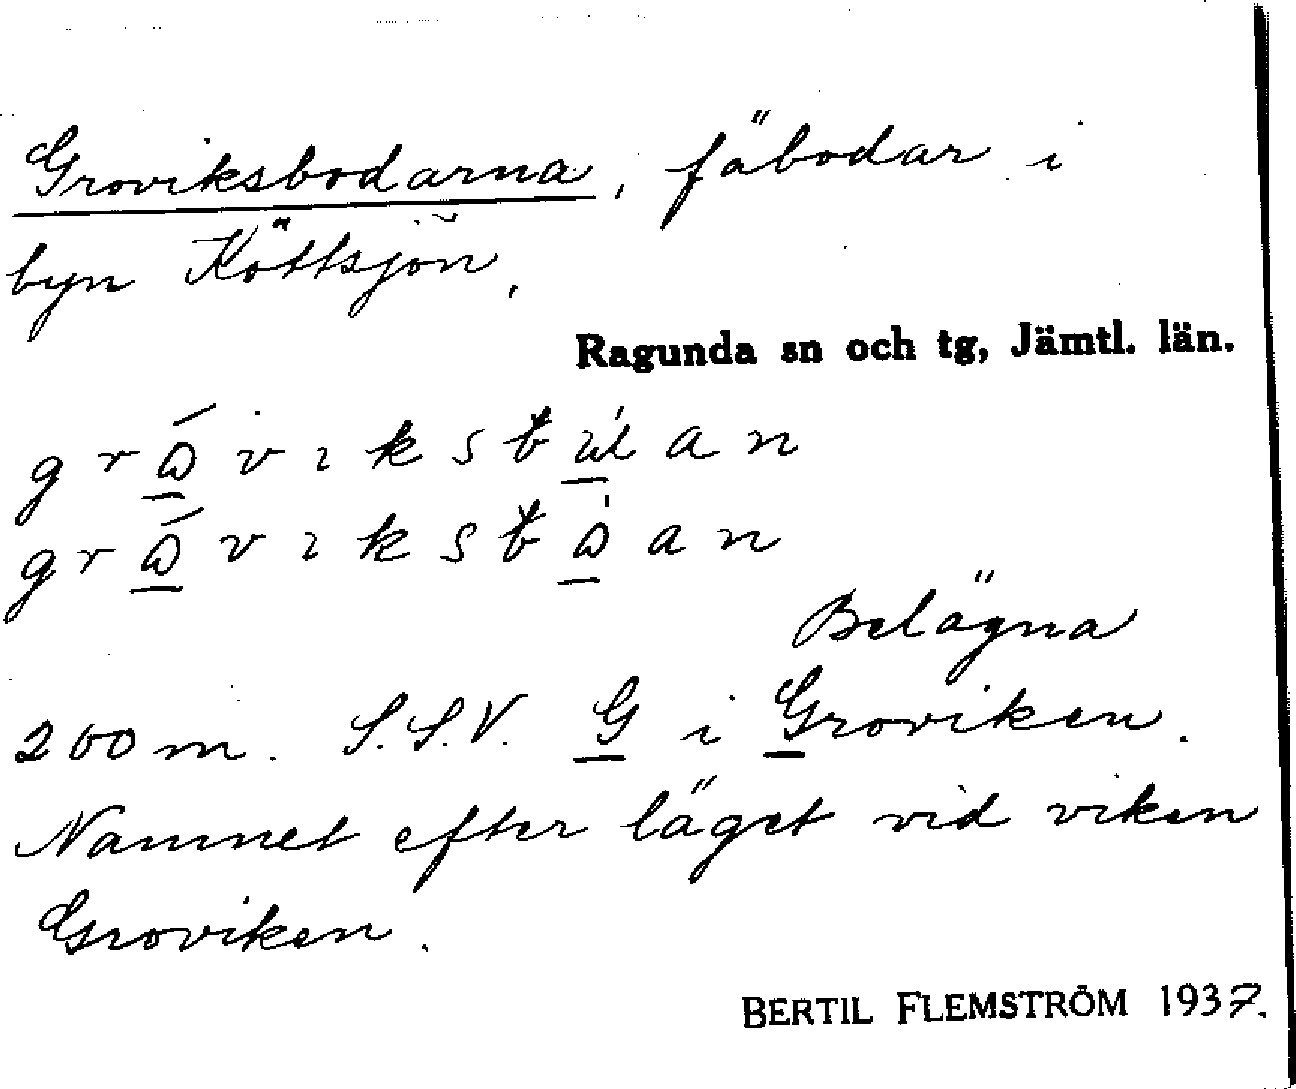 Groviksbodarna, fäbodar i
byn Köttsjön,
Ragunda sn och tg, Jämtl. län.
Belägna
200 m. S.S.V. G i Groviken.
Namnet efter läget vid viken
Groviken.
BERTIL FLEMSTRÖM 1937.